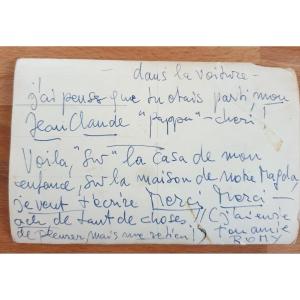 — dans la voiture —
j'ai pensé que tu étais parti, mon
Jean Claude "Peppou" - chéri !
Voilà, "sur" la casa de mon
enfance, sur la maison de notre Magda,
je veux t'écrire Merci Merci —
de tant de choses !! (j'ai envie
de pleurer, mais me retien !) Ton amie
ROMY